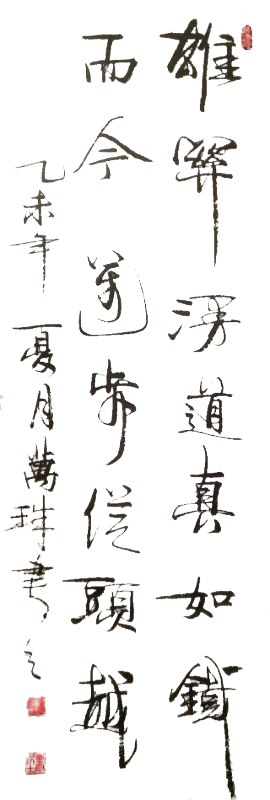 雄關漫道真如鐵
而今邁步從頭越
乙未年夏月萬珠書之